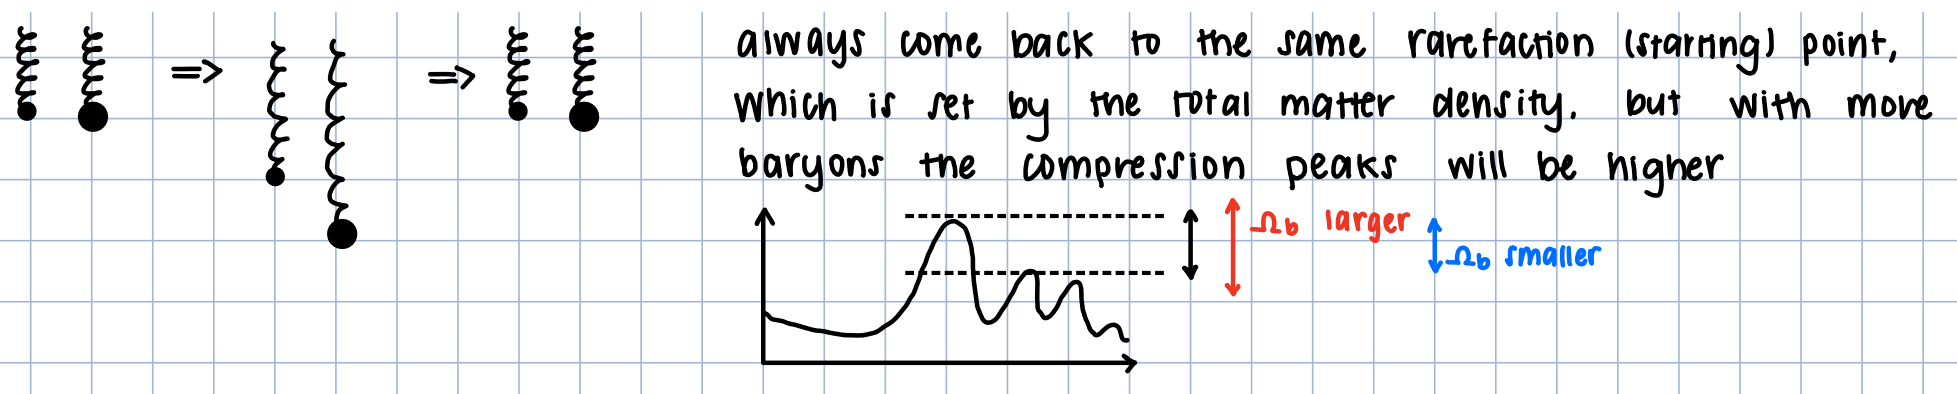 always come back to the same rarefaction (starting) point,
which is set by the total matter density. but with more
baryons the compression peaks will be higher
Ωb larger
Ωb smaller